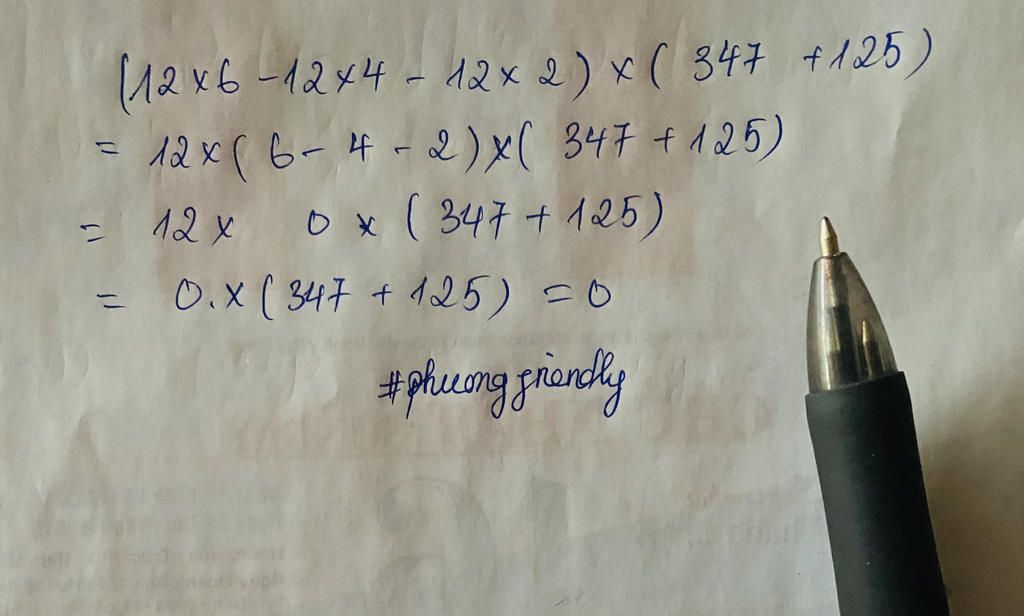 (12 x 6 - 12 x 4 - 12 x 2) x ( 347 + 125)
= 12 x ( 6 - 4 - 2) x ( 347 + 125)
= 12 x 0 x ( 347 + 125)
= 0. x ( 347 + 125) = 0
#phuong friendly